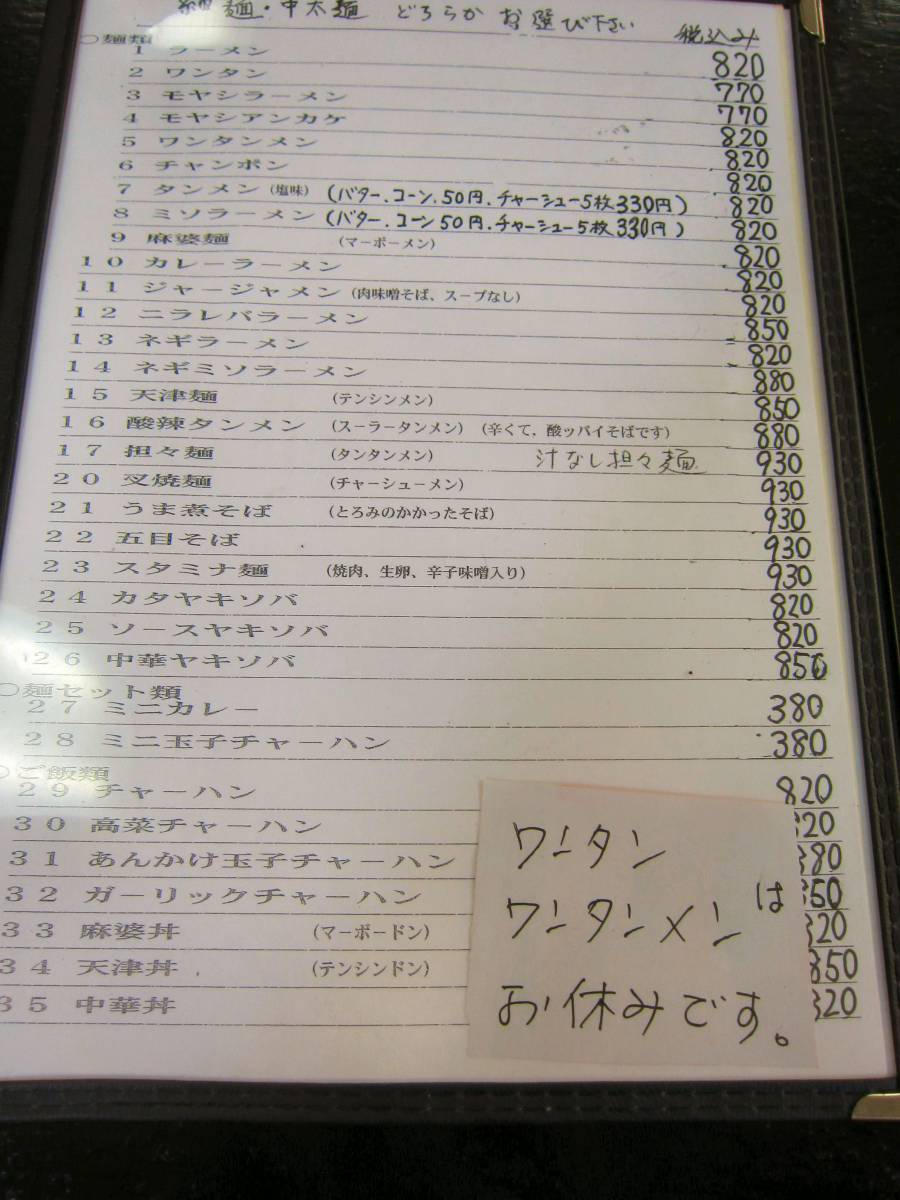 細麺・中太麺 どちらか お選び下さい 税込み
○麺類
1 ラーメン 820
2 ワンタン 770
3 モヤシラーメン 770
4 モヤシアンカケ 820
5 ワンタンメン 820
6 チャンポン 820
7 タンメン(塩味) (バター.コーン.50円.チャーシュー5枚330円) 820
8 ミソラーメン (バター.コーン50円.チャーシュー5枚330円) 820
9 麻婆麺 (マーボーメン) 820
10 カレーラーメン 820
11 ジャージャメン (肉味噌そば、スープなし) 820
12 ニラレバラーメン 850
13 ネギラーメン 820
14 ネギミソラーメン 880
15 天津麺 (テンシンメン) 850
16 酸辣タンメン (スーラータンメン) (辛くて、酸ッパイそばです) 880
17 担々麺 (タンタンメン) 汁なし担々麺 930
20 叉焼麺 (チャーシューメン) 930
21 うま煮そば (とろみのかかったそば) 930
22 五目そば 930
23 スタミナ麺 (焼肉、生卵、辛子味噌入り) 930
24 カタヤキソバ 820
25 ソースヤキソバ 820
26 中華ヤキソバ 850
○麺セット類
27 ミニカレー 380
28 ミニ玉子チャーハン 380
○ご飯類
29 チャーハン 820
30 高菜チャーハン
31 あんかけ玉子チャーハン
32 ガーリックチャーハン
33 麻婆丼 (マーボードン)
34 天津丼 (テンシンドン) 850
35 中華丼
ワンタン
ワンタンメンは
お休みです。